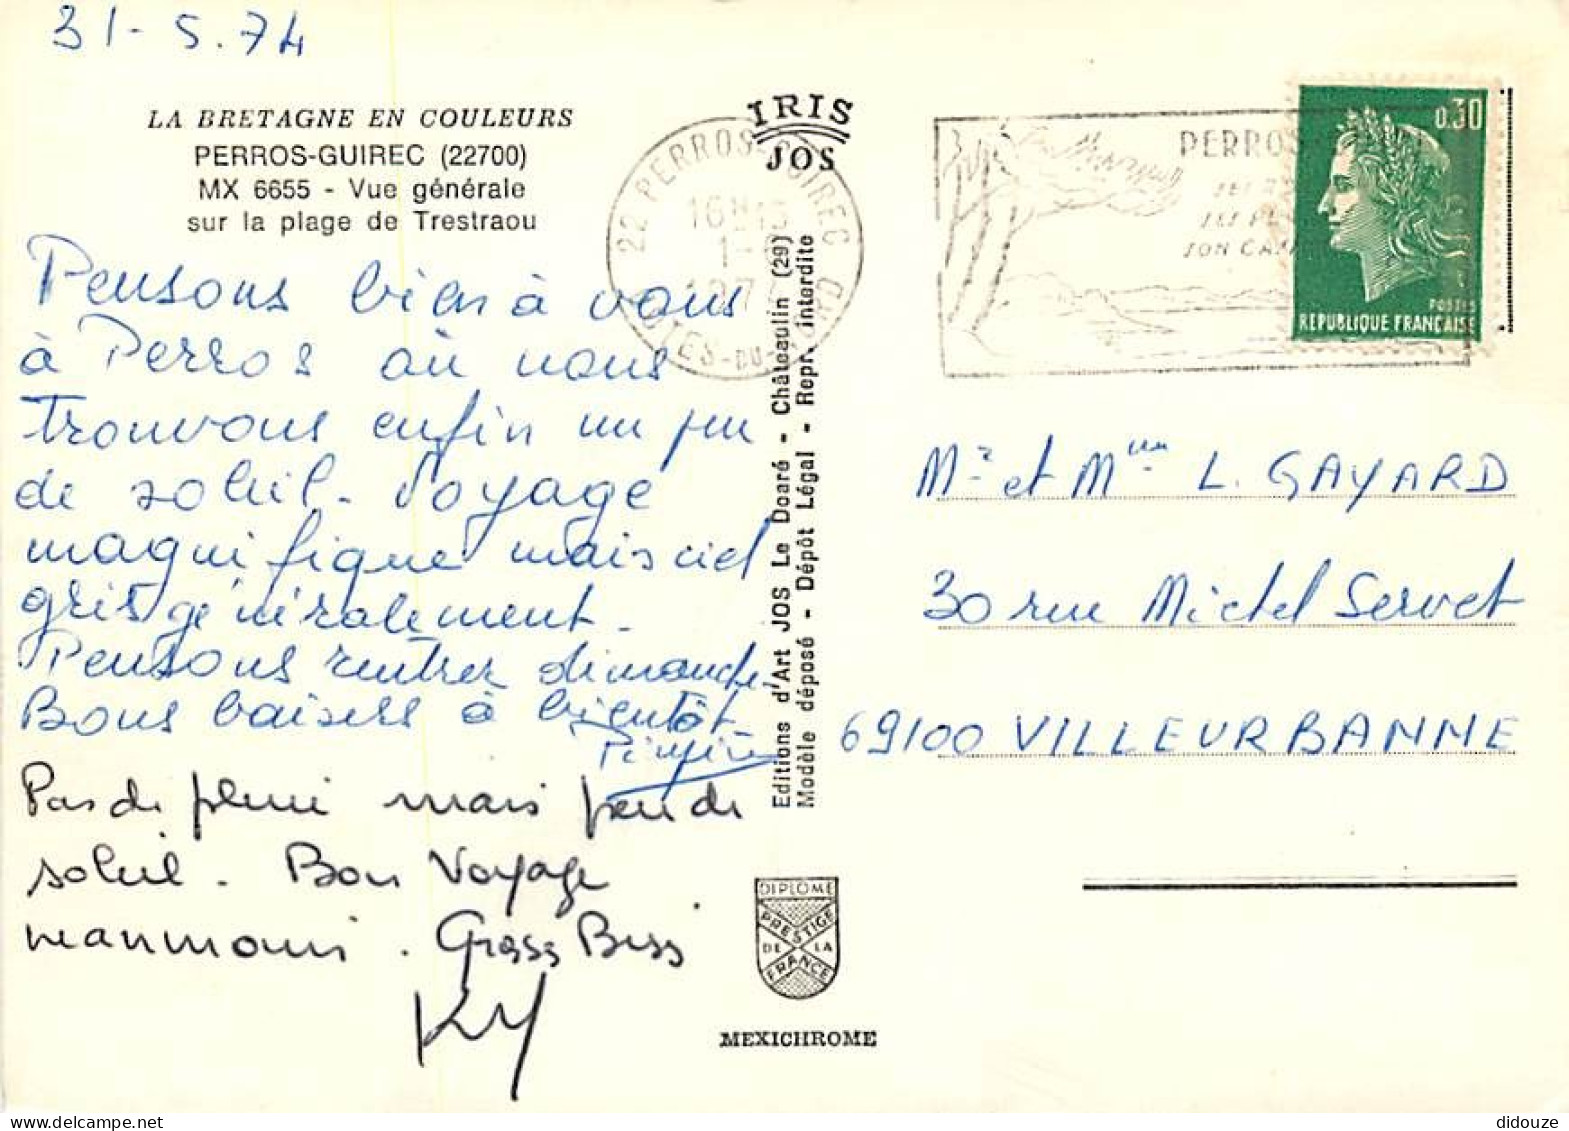 31-5.74
LA BRETAGNE EN COULEURS
PERROS-GUIREC (22700)
MX 6655 - Vue générale
sur la plage de Trestraou
Pensons bien à vous
à Perros où nous
trouvons enfin un peu
de soleil. Voyage
magnifique mais ciel
gris généralement.
Pensons rentrer dimanche.
Bons baisers à bientôt
Pas de pluie mais peu de
soleil. Bon Voyage
néanmoins. Gross Biss
IRIS
JOS
22 PERROS-GUIREC
16H
CÔTES-DU-NORD
PERROS
SON
0,30
POSTES
REPUBLIQUE FRANÇAISE
Editions d'Art JOS Le Doaré - Châteaulin (29)
Modèle déposé - Dépôt Légal - Repr. interdite
Mr et Mme L. GAYARD
30 rue Michel Servet
69100 VILLEURBANNE
DIPLOME
PRESTIGE
DE LA
FRANCE
MEXICHROME
didouze